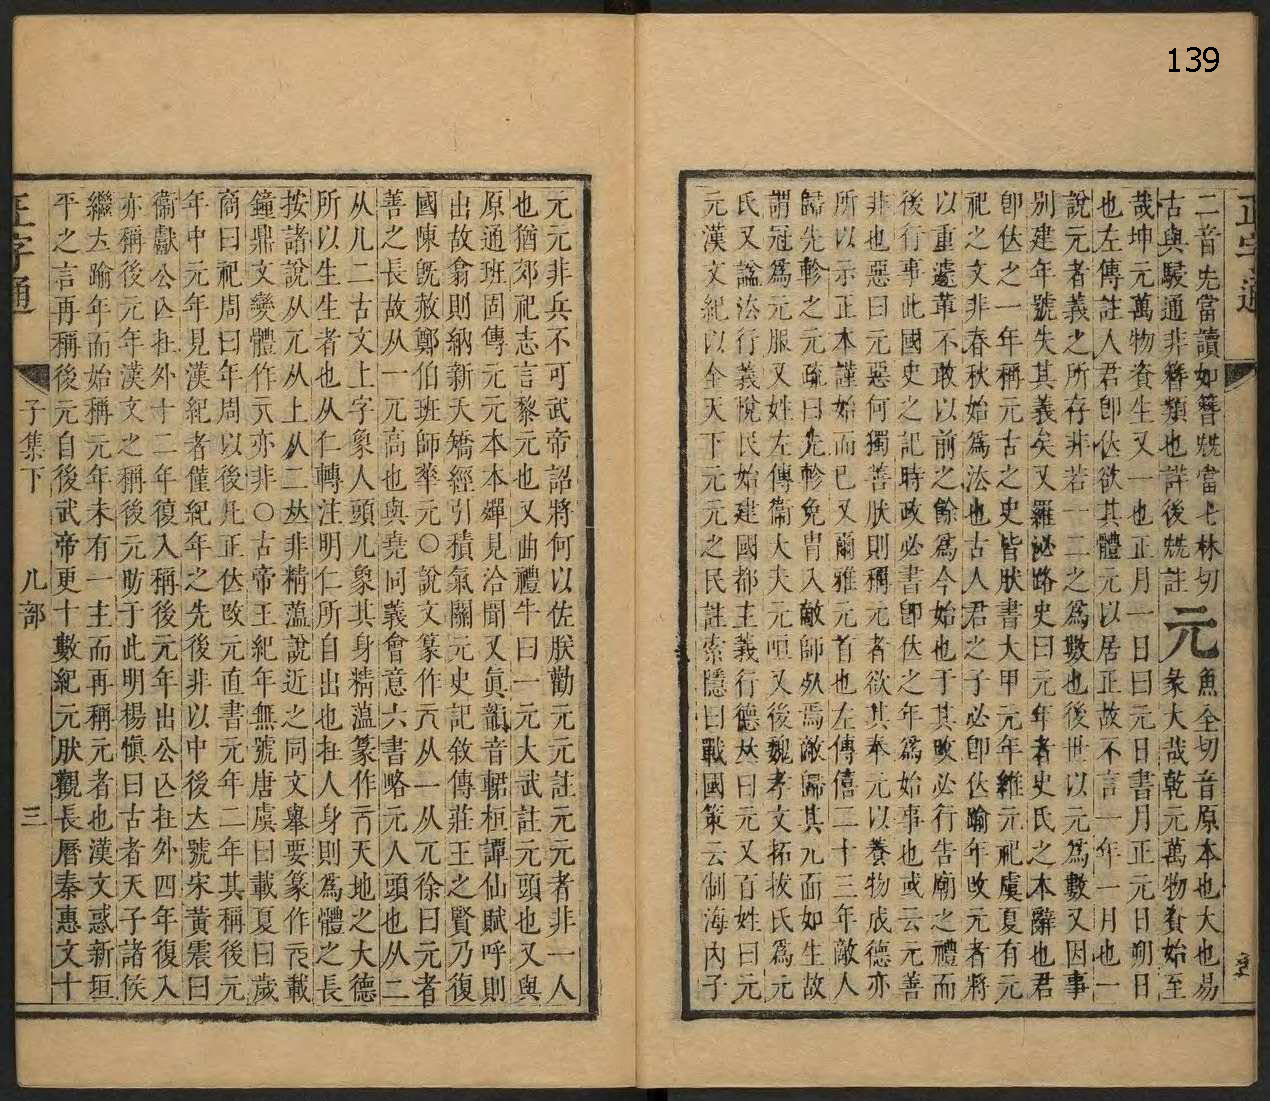 139
正字通
二音先當讀如簪兟當七林切
古與騣通非簪類也詳後兟註 元 魚全切音原本也大也易
彖大哉乾元萬物資始至
哉坤元萬物資生又一也正月一日曰元日書月正元日朔日
也左傳註人君卽位欲其體元以居正故不言一年一月也一
說元者義之所存非若一二之爲數也後世以元爲數又因事
別建年號失其義矣又羅泌路史曰元年者史氏之本辭也君
卽位之一年稱元古之史皆肰書大甲元年維元祀虞夏有元
祀之文非春秋始爲法也古人君之子必卽位踰年改元者將
以重遽革不敢以前之餘爲今始也于其改必行告廟之禮而
後行事此國史之記時政必書卽位之年爲始事也或云元善
非也惡曰元惡何獨善肰則稱元者欲其奉元以養物成德亦
所以示正本謹始而已又爾雅元首也左傳僖三十三年敵人
歸先軫之元疏曰先軫免冑入敵師死焉敵歸其元面如生故
謂冠爲元服又姓左傳衞大夫元咺又後魏孝文拓拔氏爲元
氏又諡法行義悅民始建國都主義行德𠀤曰元又百姓曰元
元漢文紀以全天下元元之民註索隱曰戰國策云制海內子
元元非兵不可武帝詔將何以佐朕勸元元註元元者非一人
也猶郊祀志言黎元也又曲禮牛曰一元大武註元頭也又與
原通班固傳元元本本殫見洽聞又眞韻音輑桓譚仙賦呼則
出故翕則納新夭矯經引積氣關元史記敘傳莊王之賢乃復
國陳旣赦鄭伯班師華元○說文篆作元从一从兀徐曰元者
善之長故从一兀高也與堯同義會意六書略元人頭也从二
从儿二古文上字象人頭儿象其身精薀篆作元天地之大德
所以生生者也从仁轉注明仁所自出也在人身則爲體之長
按諸說从兀从上从二𠀤非精薀說近之同文舉要篆作元載
鐘鼎文變體作元亦非○古帝王紀年無號唐虞曰載夏曰歲
商曰祀周曰年周以後凡正位改元直書元年二年其稱後元
年中元年見漢紀者僅紀年之先後非以中後立號宋黃震曰
衞獻公出在外十二年復入稱後元年出公出在外四年復入
亦稱後元年漢文之稱後元昉于此明楊愼曰古者天子諸侯
繼立踰年而始稱元年未有一主而再稱元者也漢文惑新垣
平之言再稱後元自後武帝更十數紀元肰觀長曆秦惠文十
正字通
子集下 儿部 三